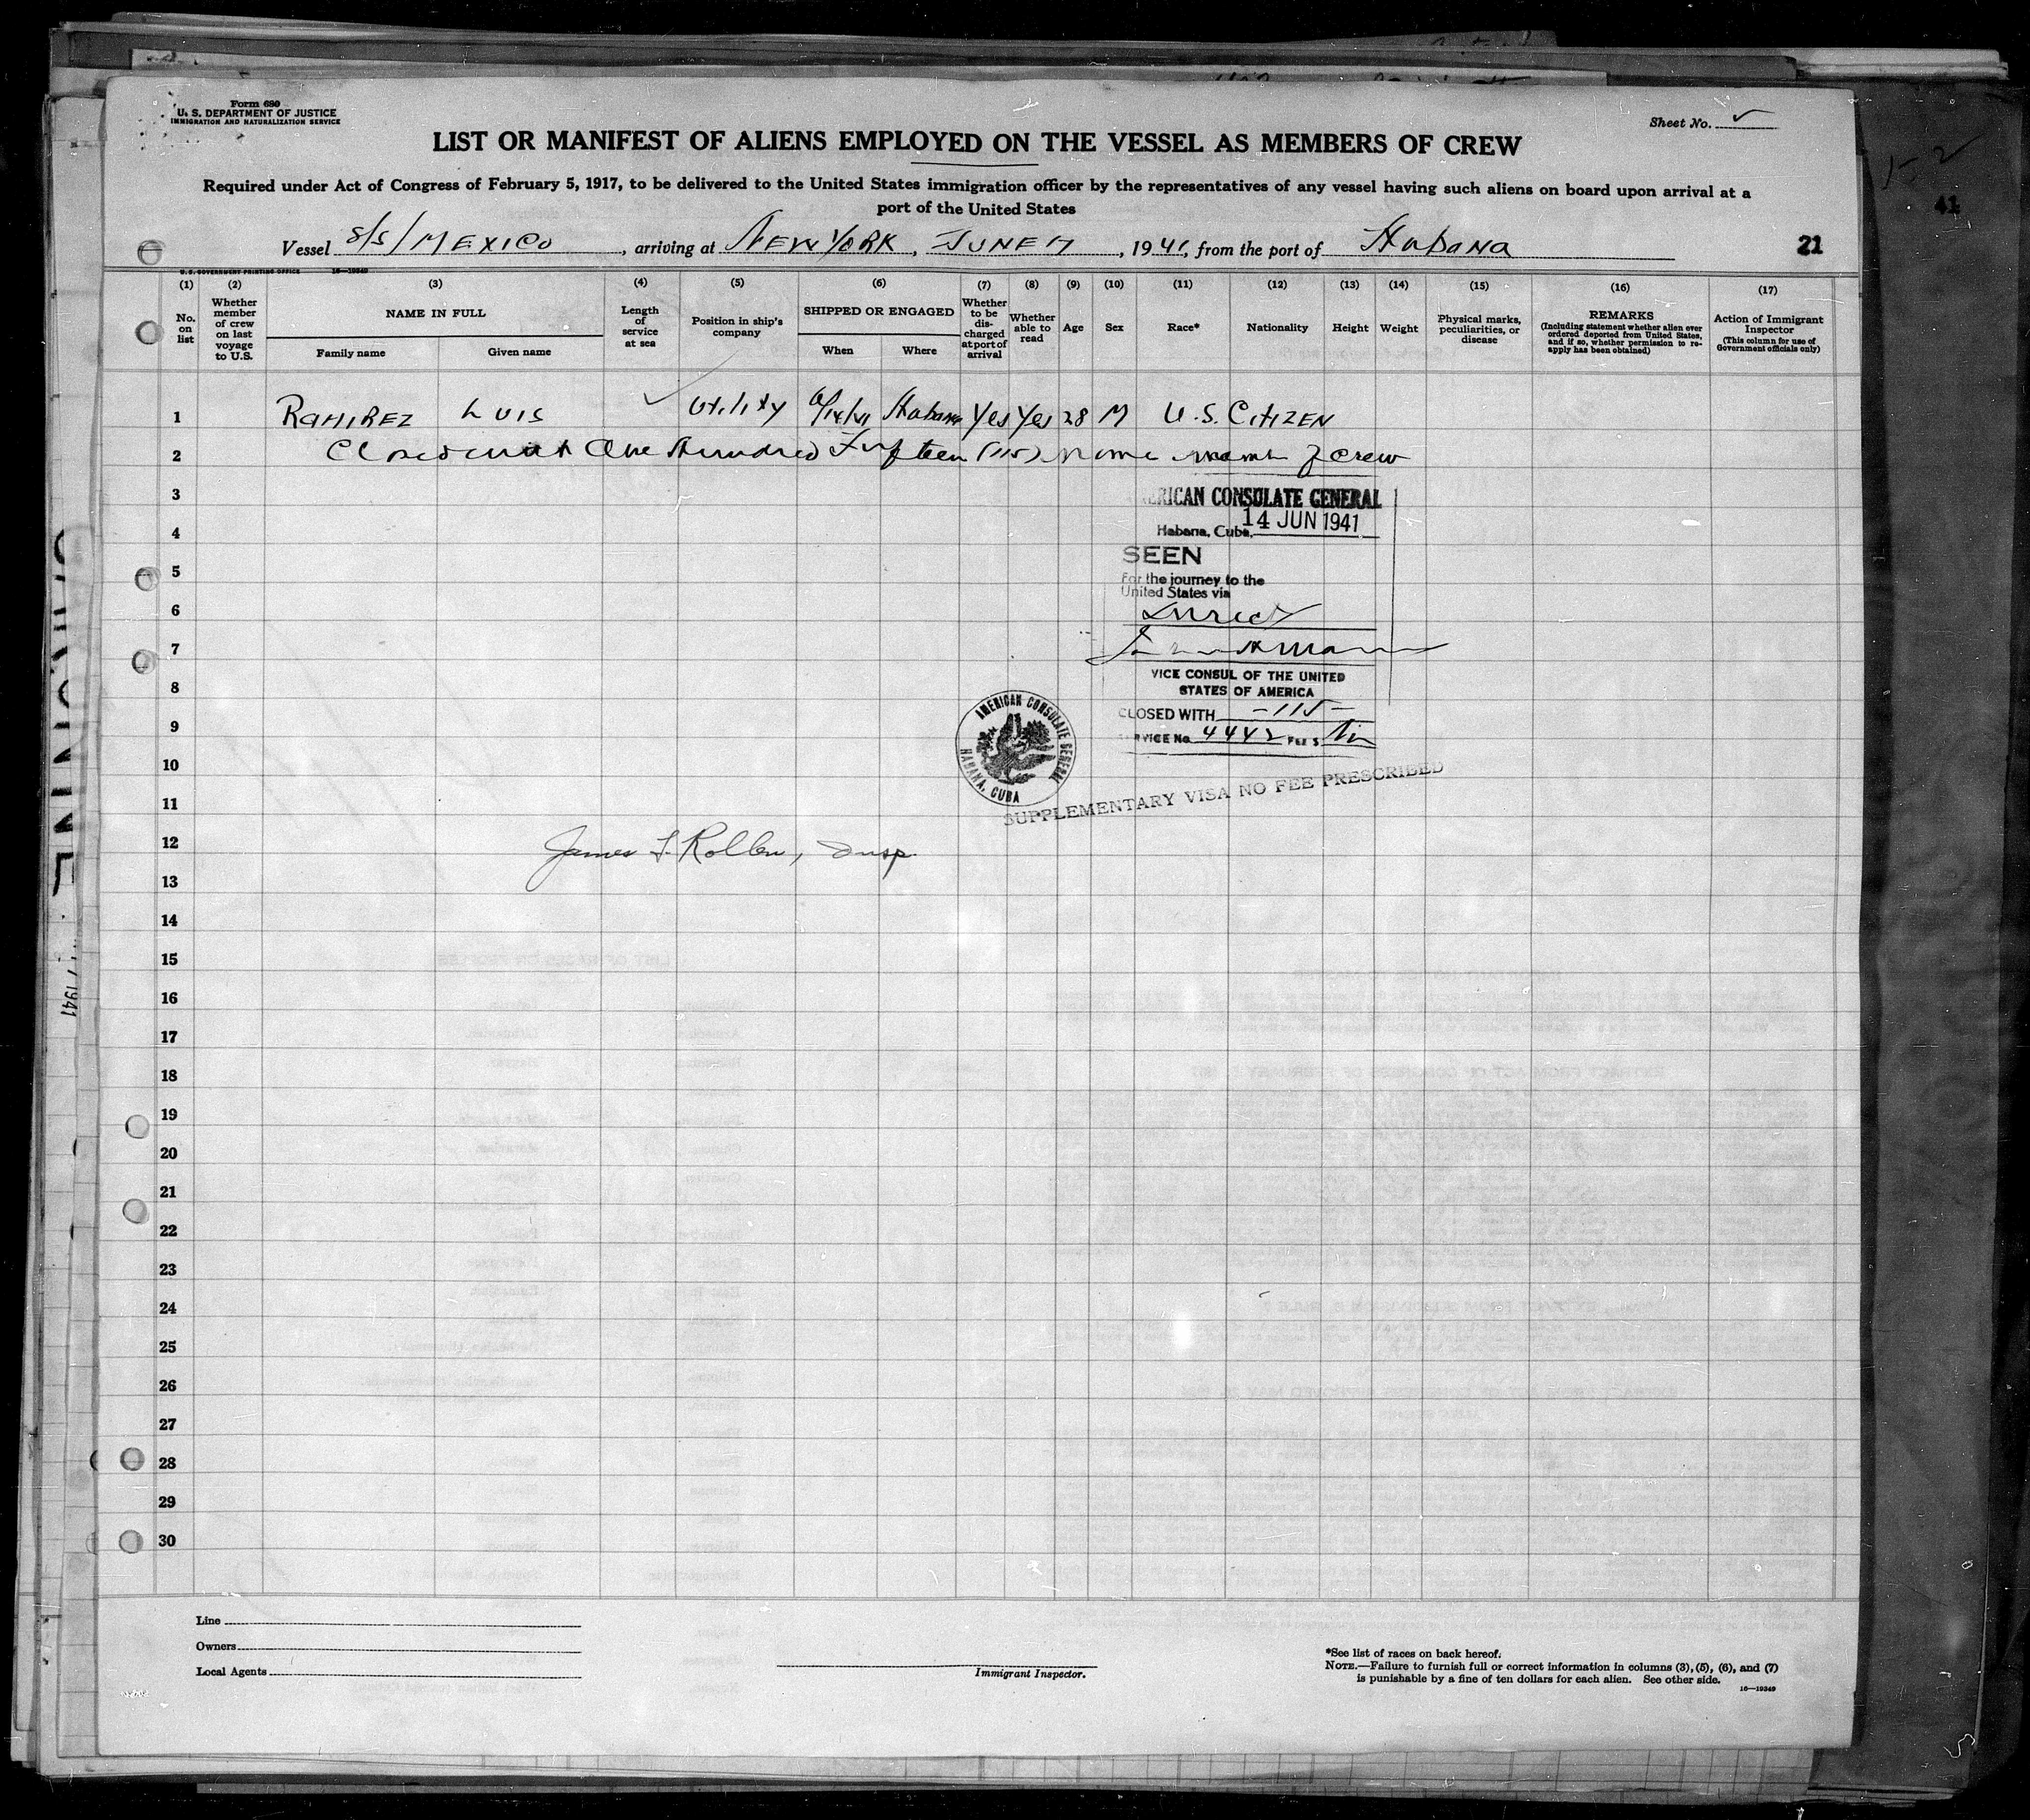 Form 680
U. S. DEPARTMENT OF JUSTICE
IMMIGRATION AND NATURALIZATION SERVICE
Sheet No.
LIST OR MANIFEST OF ALIENS EMPLOYED ON THE VESSEL AS MEMBERS OF CREW
Required under Act of Congress of February 5, 1917, to be delivered to the United States immigration officer by the representatives of any vessel having such aliens on board upon arrival at a
port of the United States
41
Vessel S/S/MEXICO, arriving at NEW YORK, JUNE 17, 1941, from the port of Habana
21
U. S. GOVERNMENT PRINTING OFFICE 16—19349
(1) No. on list
(2) Whether member of crew on last voyage to U.S.
(3) NAME IN FULL
Family name
Given name
(4) Length of service at sea
(5) Position in ship's company
(6) SHIPPED OR ENGAGED
When
Where
(7) Whether to be discharged at port of arrival
(8) Whether able to read
(9) Age
(10) Sex
(11) Race*
(12) Nationality
(13) Height
(14) Weight
(15) Physical marks, peculiarities, or disease
(16) REMARKS
(Including statement whether alien ever ordered deported from United States, and if so, whether permission to reapply has been obtained)
(17) Action of Immigrant Inspector
(This column for use of Government officials only)
1 RAMIREZ LUIS Utility 6/14/41 Habana Yes Yes 28 M U.S. CITIZEN
2 Closed with One Hundred Fifteen (115) crew
3
AMERICAN CONSULATE GENERAL
4
Habana, Cuba, 14 JUN 1941
SEEN
5
For the journey to the
United States via
6
Direct
7
VICE CONSUL OF THE UNITED
8
STATES OF AMERICA
CLOSED WITH -115-
9
SERVICE No. 4442 FEE $
AMERICAN CONSULATE GENERAL
HABANA, CUBA
10
SUPPLEMENTARY VISA NO FEE PRESCRIBED
11
12
James F. Insp.
13
14
15
16
17
18
19
20
21
22
23
24
25
26
27
28
29
30
Line
Owners
Local Agents
Immigrant Inspector.
*See list of races on back hereof.
NOTE.—Failure to furnish full or correct information in columns (3), (5), (6), and (7)
is punishable by a fine of ten dollars for each alien. See other side.
16—19349
1941